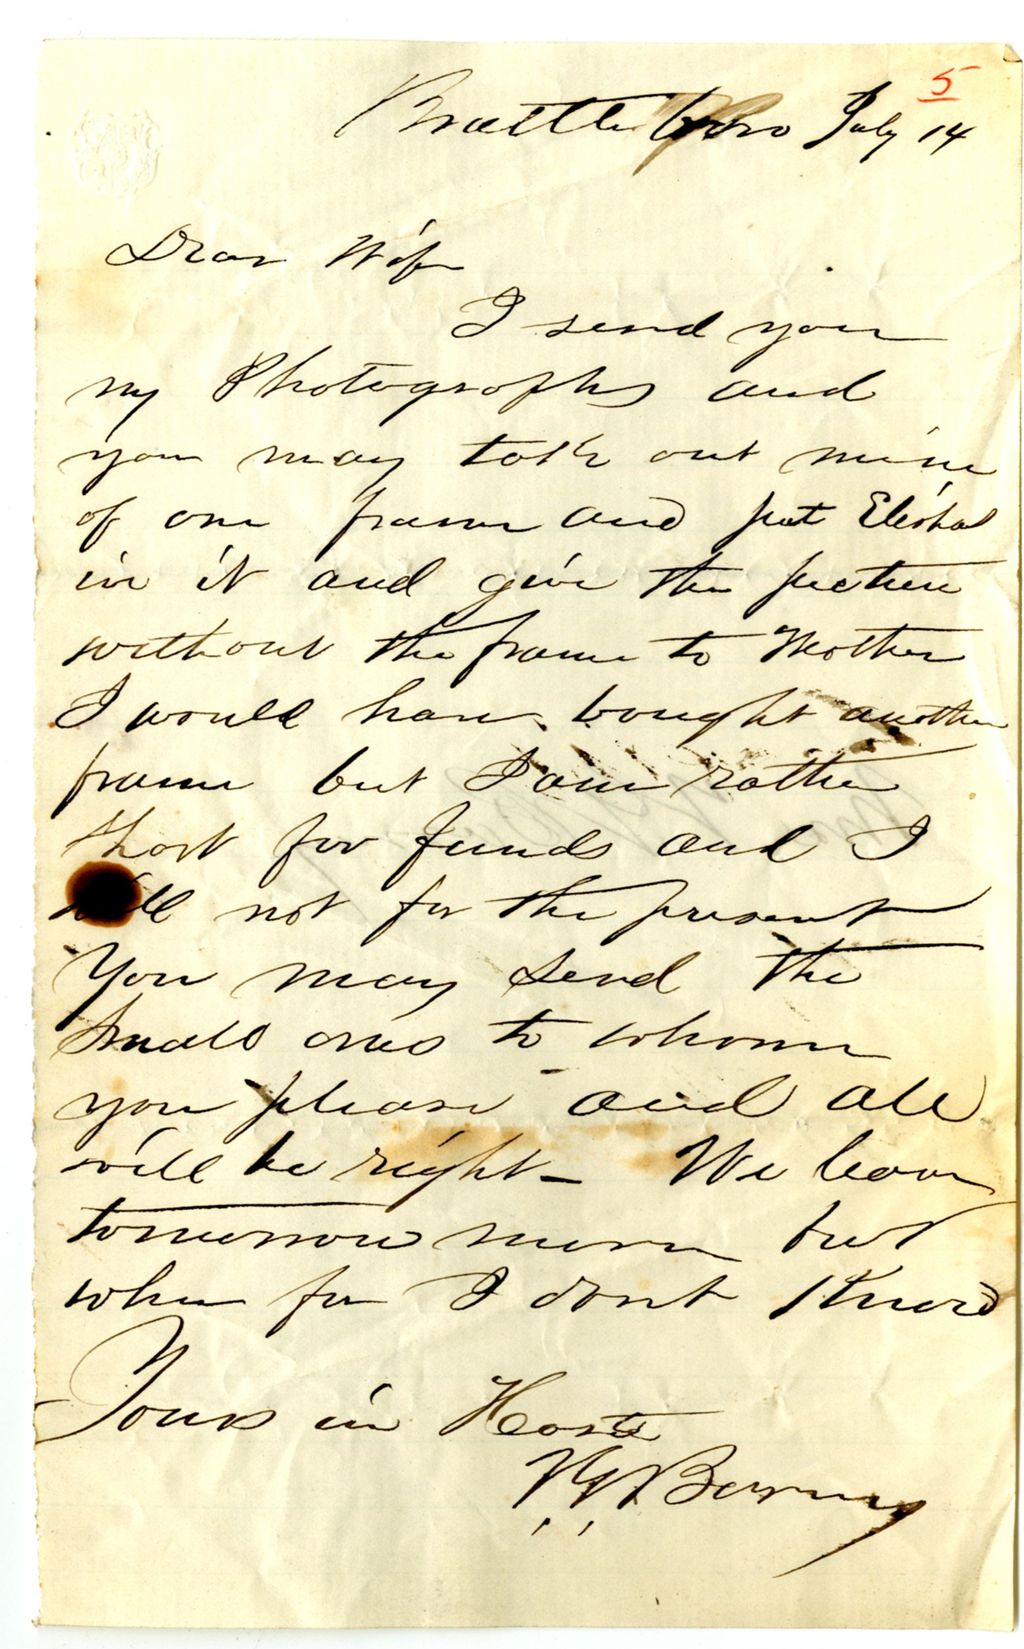 5
Brattleboro July 14
Dear Wife
I send you
my Photographs and
you may take out mine
of one frame and put Elisha
in it and give the picture
without the frame to Mother
I would have bought another
frame but I am rather
short for funds and I
will not for the present
You may send the
small ones to whome
you please and all
will be right - We leave
tomorrow morn but
where for I dont know
Yours in Haste
Barney